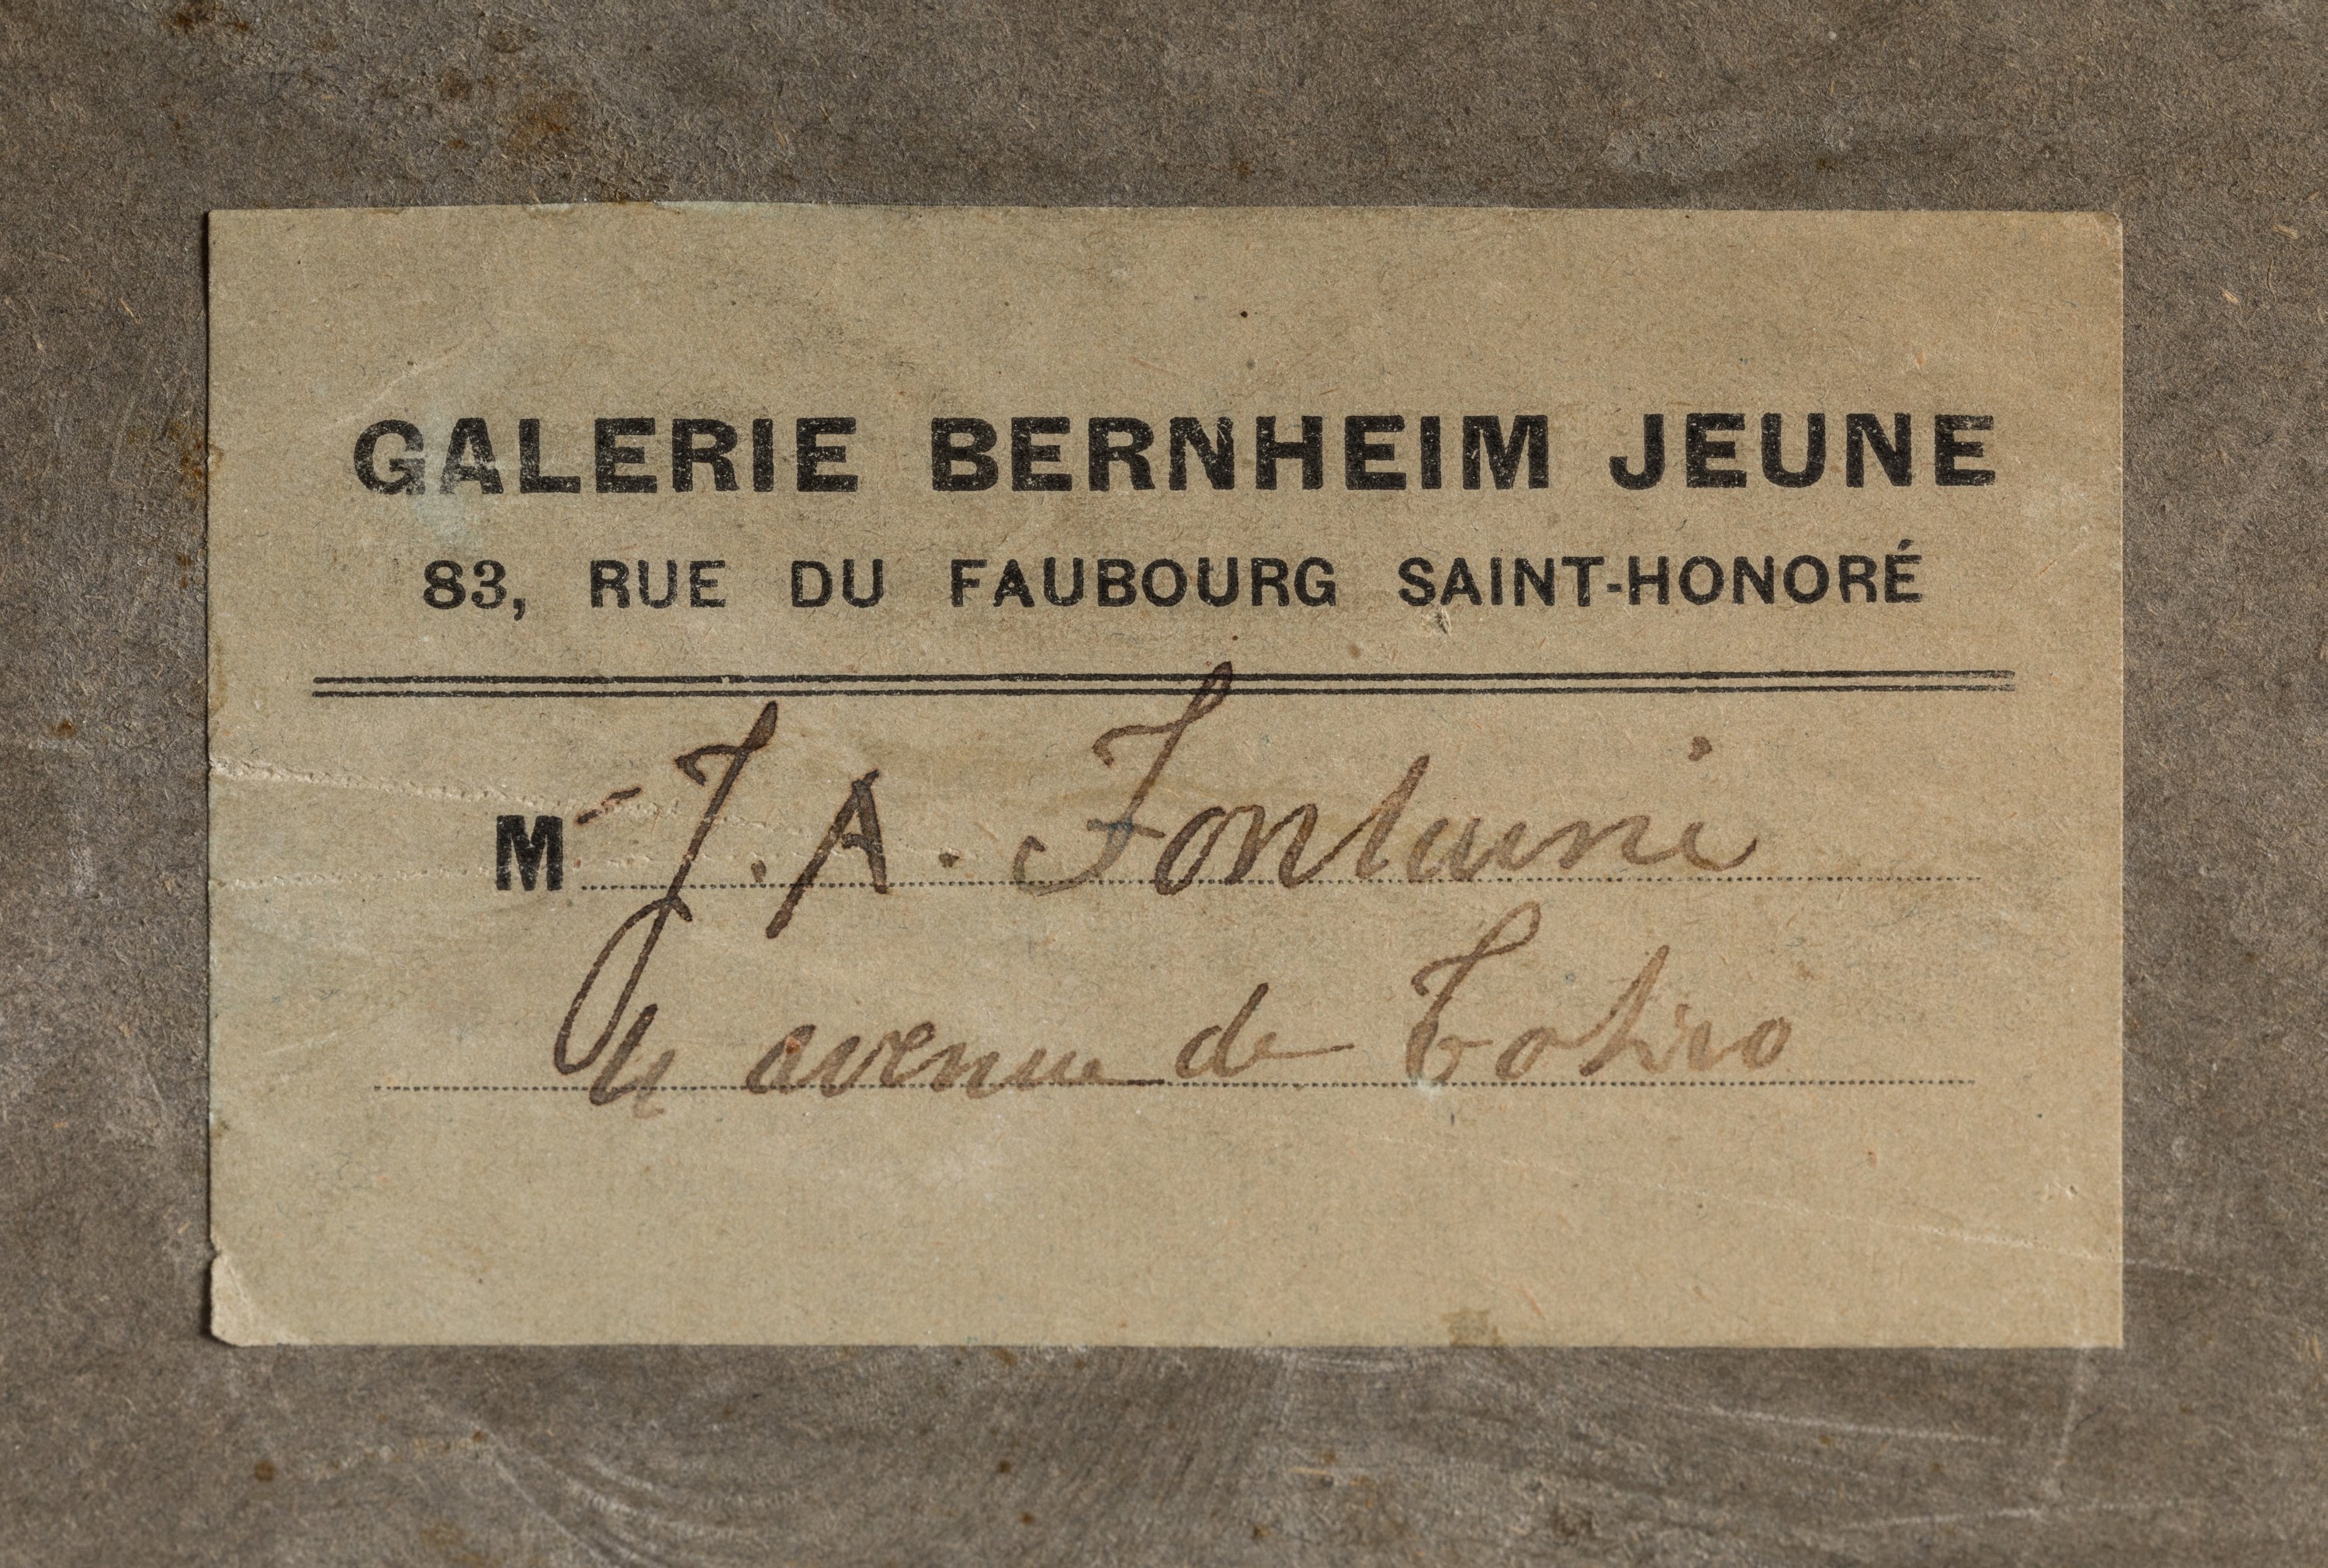 GALERIE BERNHEIM JEUNE
83, RUE DU FAUBOURG SAINT-HONORÉ
M J. A. Fontaine
4 avenue de Tokio